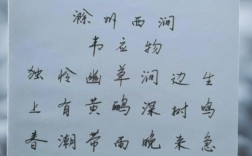 滁州西涧
韦应物
独怜幽草涧边生
上有黄鹂深树鸣
春潮带雨晚来急